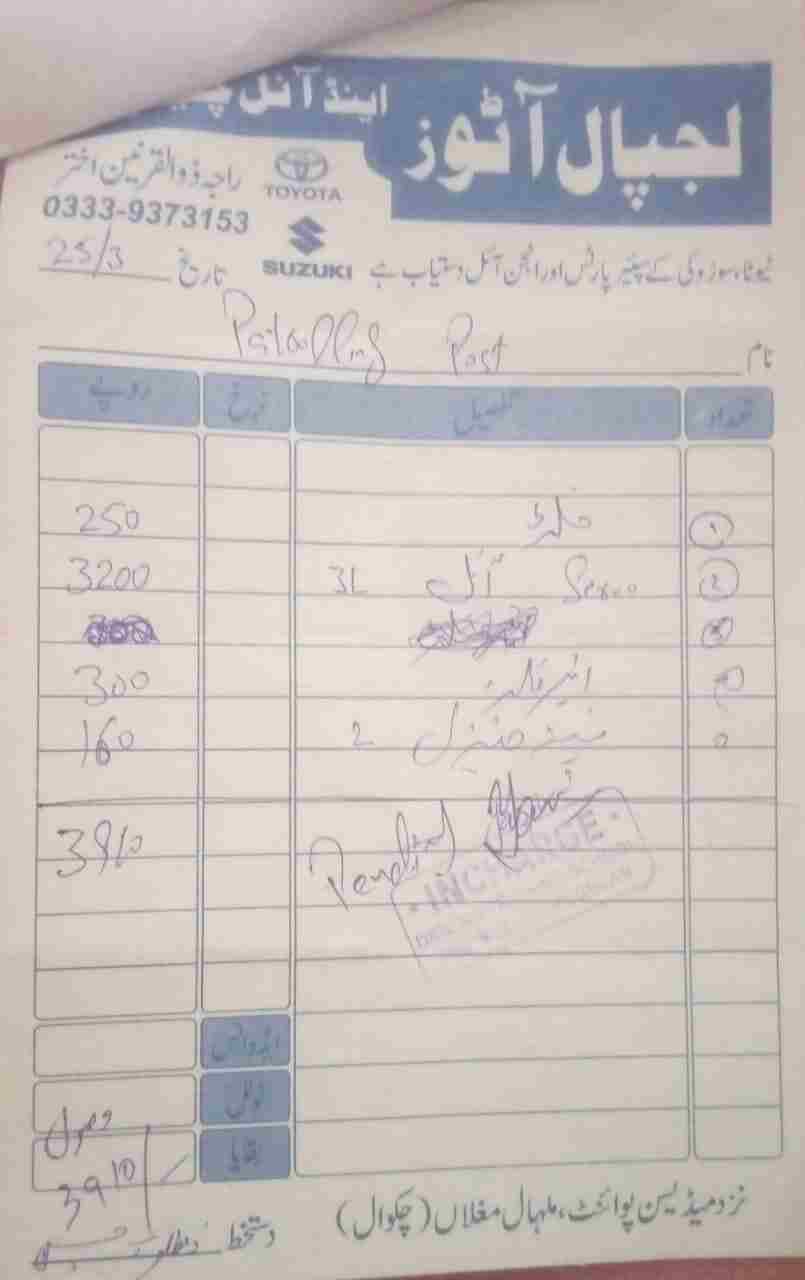 لجپال آٹوز اینڈ آئل
راجہ ذوالقرنین اختر
TOYOTA
0333-9373153
SUZUKI
ٹیوٹا، سوزوکی کے سپیئر پارٹس اور انجن آئل دستیاب ہے
تاریخ 25/3
نام Patrolling Post
تعداد تفصیل نرخ روپے
1 فلٹر 250
2 آئل 3L 3200
3
ائیر فلٹر 300
2 160
3910
INCHARGE
ایڈوانس
ٹوٹل
بقایا
وصول
3910
دستخط
نزد میڈیسن پوائنٹ، ملہال مغلاں (چکوال)